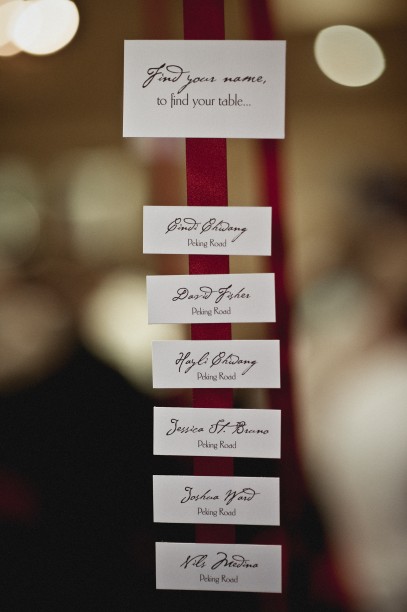 Find your name,
to find your table...
Cindi Chwang
Peking Road
David Fisher
Peking Road
Hayli Chwang
Peking Road
Jessica St. Bruno
Peking Road
Joshua Ward
Peking Road
Nils Medina
Peking Road